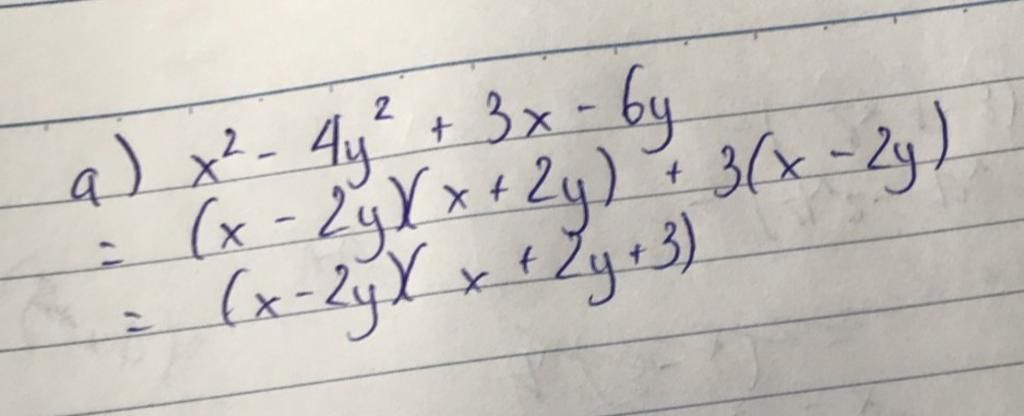 a) x² - 4y² + 3x - 6y
= (x - 2y)(x + 2y) + 3(x - 2y)
= (x - 2y)(x + 2y + 3)